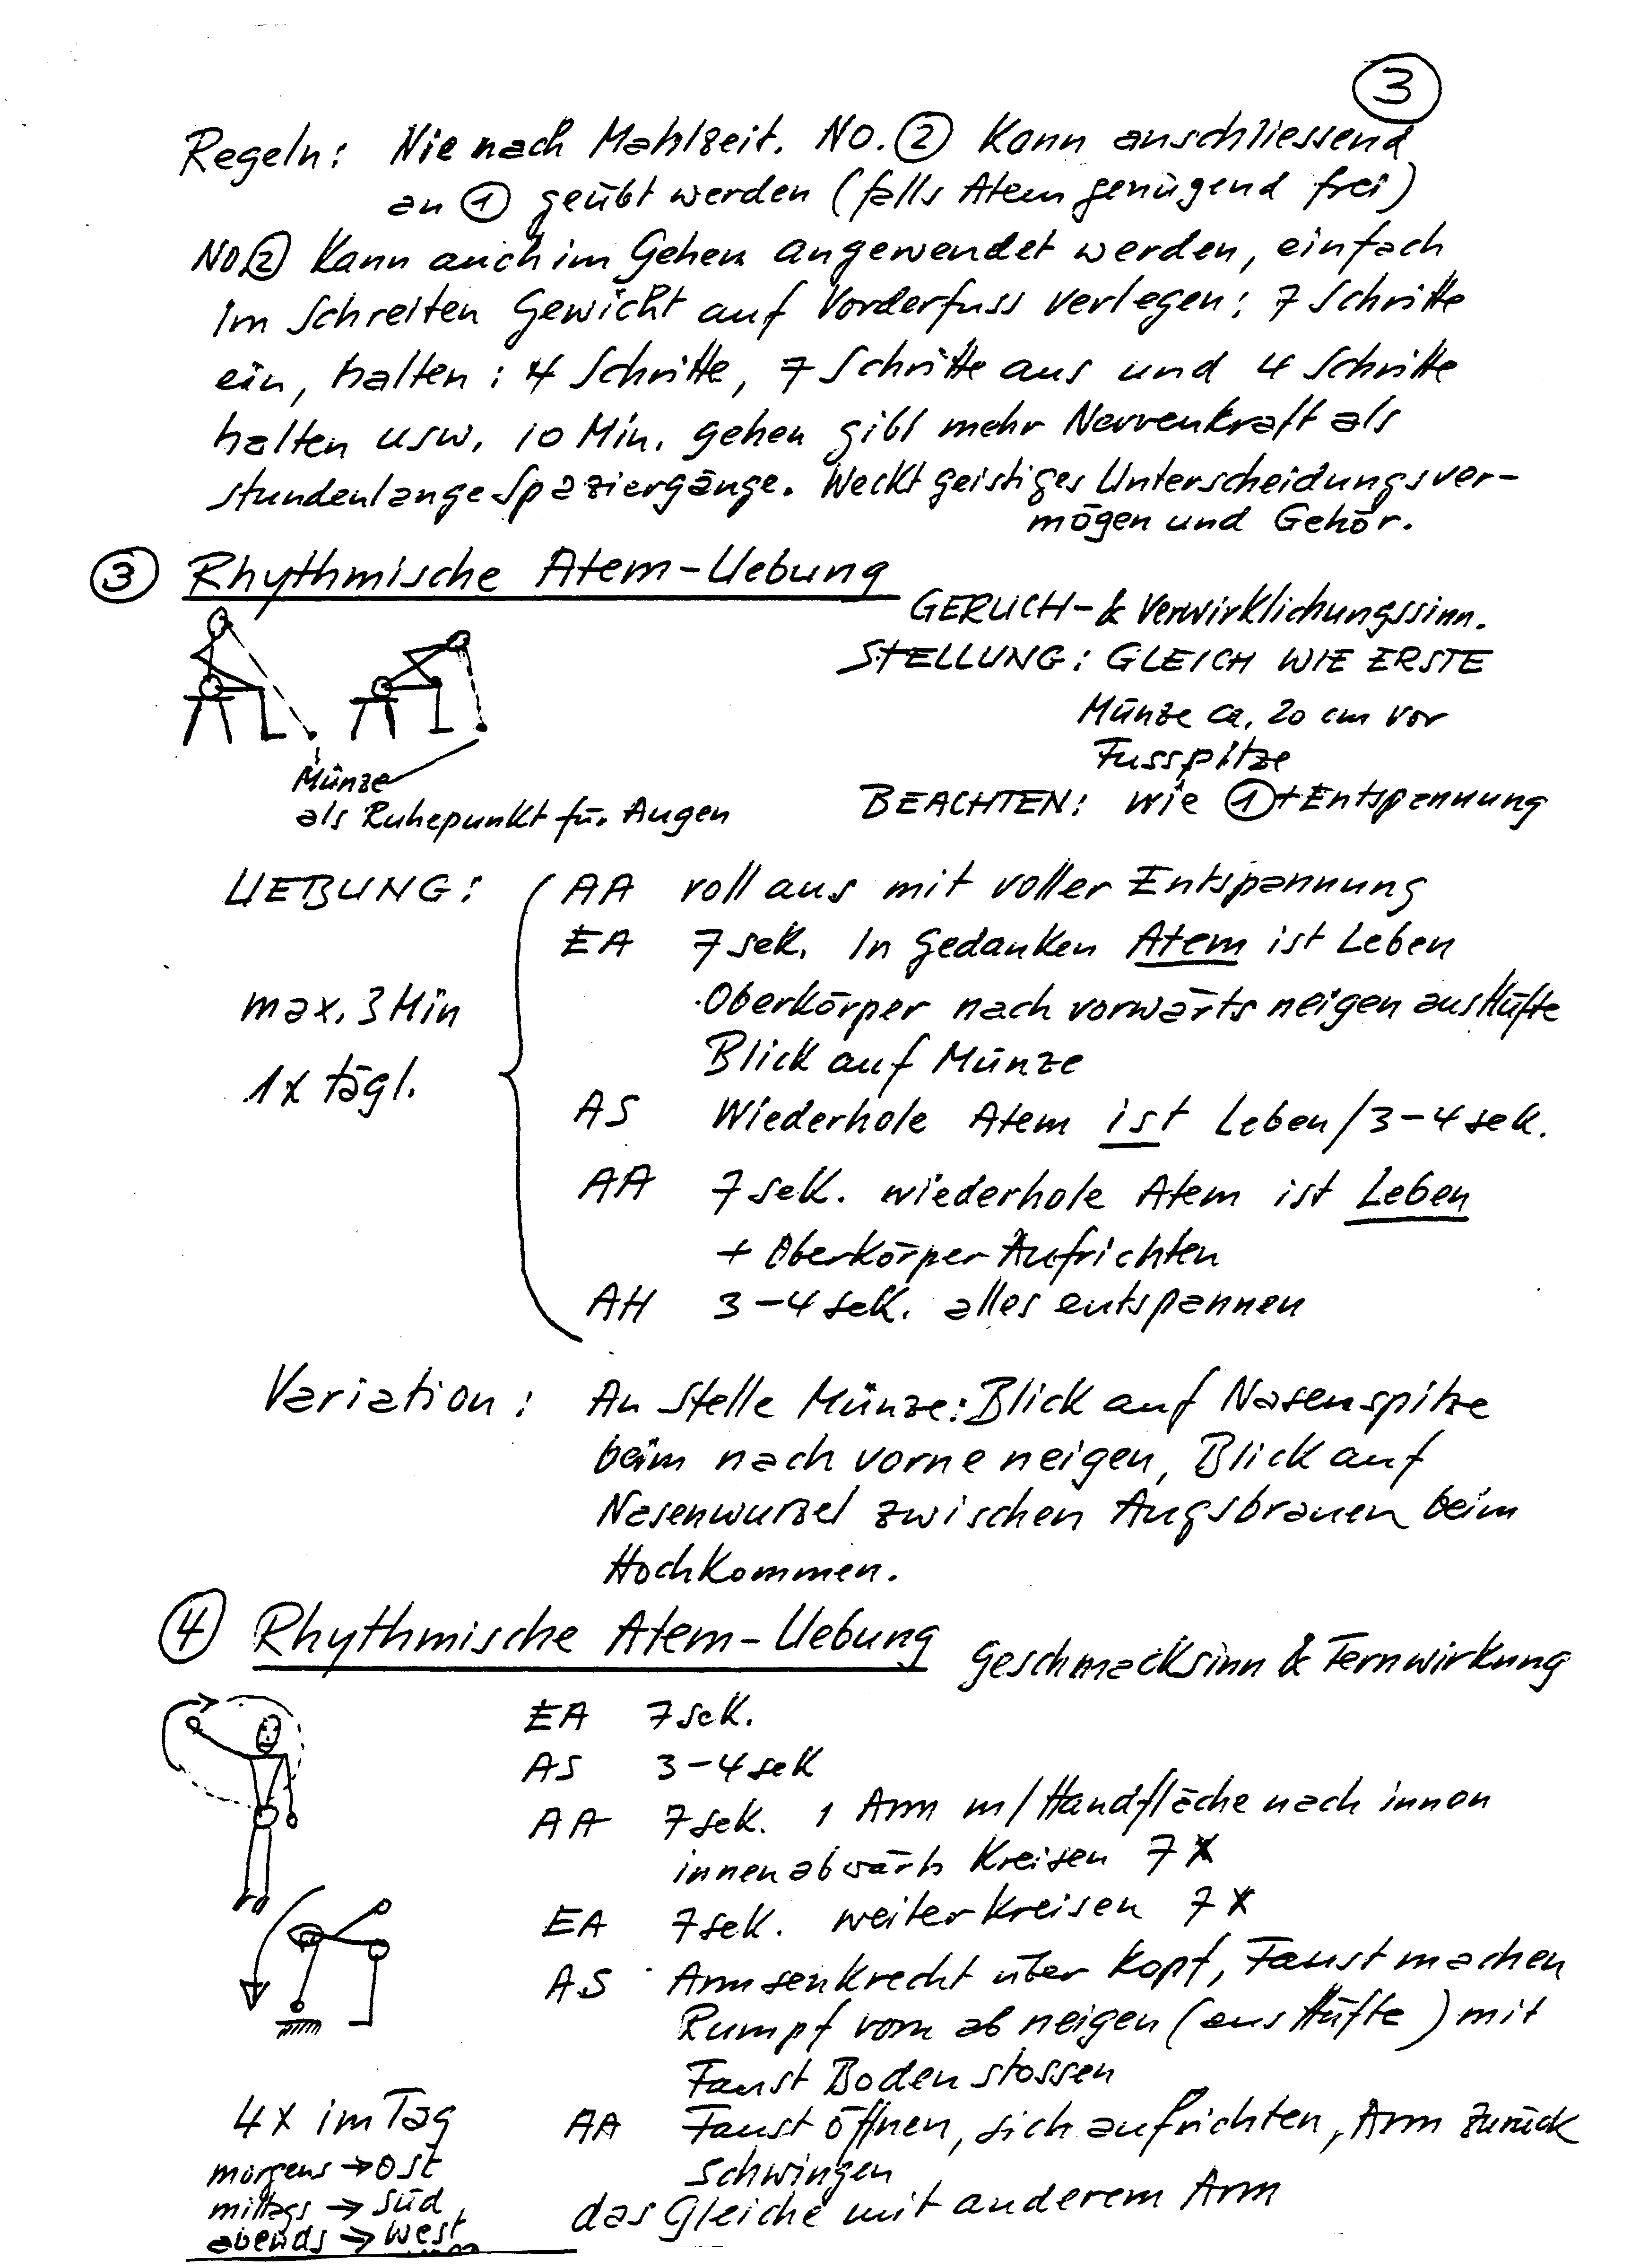 3
Regeln: Nie nach Mahlzeit. No. ② Kann anschliessend
an ① geübt werden (falls Atem genügend frei)
No ② Kann auch im Gehen angewendet werden, einfach
im Schreiten Gewicht auf Vorderfuss verlegen: 7 Schritte
ein, halten: 4 Schritte, 7 Schritte aus und 4 Schritte
halten usw. 10 Min. gehen gibt mehr Nervenkraft als
stundenlange Spaziergänge. Weckt geistiges Unterscheidungsver-
mögen und Gehör.
③ Rhythmische Atem-Uebung
GERUCH- & Verwirklichungssinn.
STELLUNG: GLEICH WIE ERSTE
Münze ca. 20 cm vor
Fusspitze
Münze
als Ruhepunkt für Augen
BEACHTEN: wie ① + Entspannung
UEBUNG: AA voll aus mit voller Entspannung
EA 7 sek. In Gedanken Atem ist Leben
max. 3 Min Oberkörper nach vorwärts neigen aus Hüfte
Blick auf Münze
1x tägl.
AS Wiederhole Atem ist Leben / 3-4 sek.
AA 7 sek. wiederhole Atem ist Leben
+ Oberkörper Aufrichten
AH 3-4 sek. alles entspannen
Variation: An Stelle Münze: Blick auf Nasenspitze
beim nach vorne neigen, Blick auf
Nasenwurzel zwischen Augsbrauen beim
Hochkommen.
④ Rhythmische Atem-Uebung Geschmacksinn & Fernwirkung
EA 7 sek.
AS 3-4 sek
AA 7 sek. 1 Arm m/Handfläche nach innen
innen abwärts Kreisen 7 x
EA 7 sek. weiter Kreisen 7 x
AS Arm senkrecht über Kopf, Faust machen
Rumpf vorn ab neigen (aus Hüfte) mit
Faust Boden stossen
4x im Tag AA Faust öffnen, sich aufrichten, Arm zurück
morgens → Ost schwingen
mittags → Süd das Gleiche mit anderem Arm
abends → West